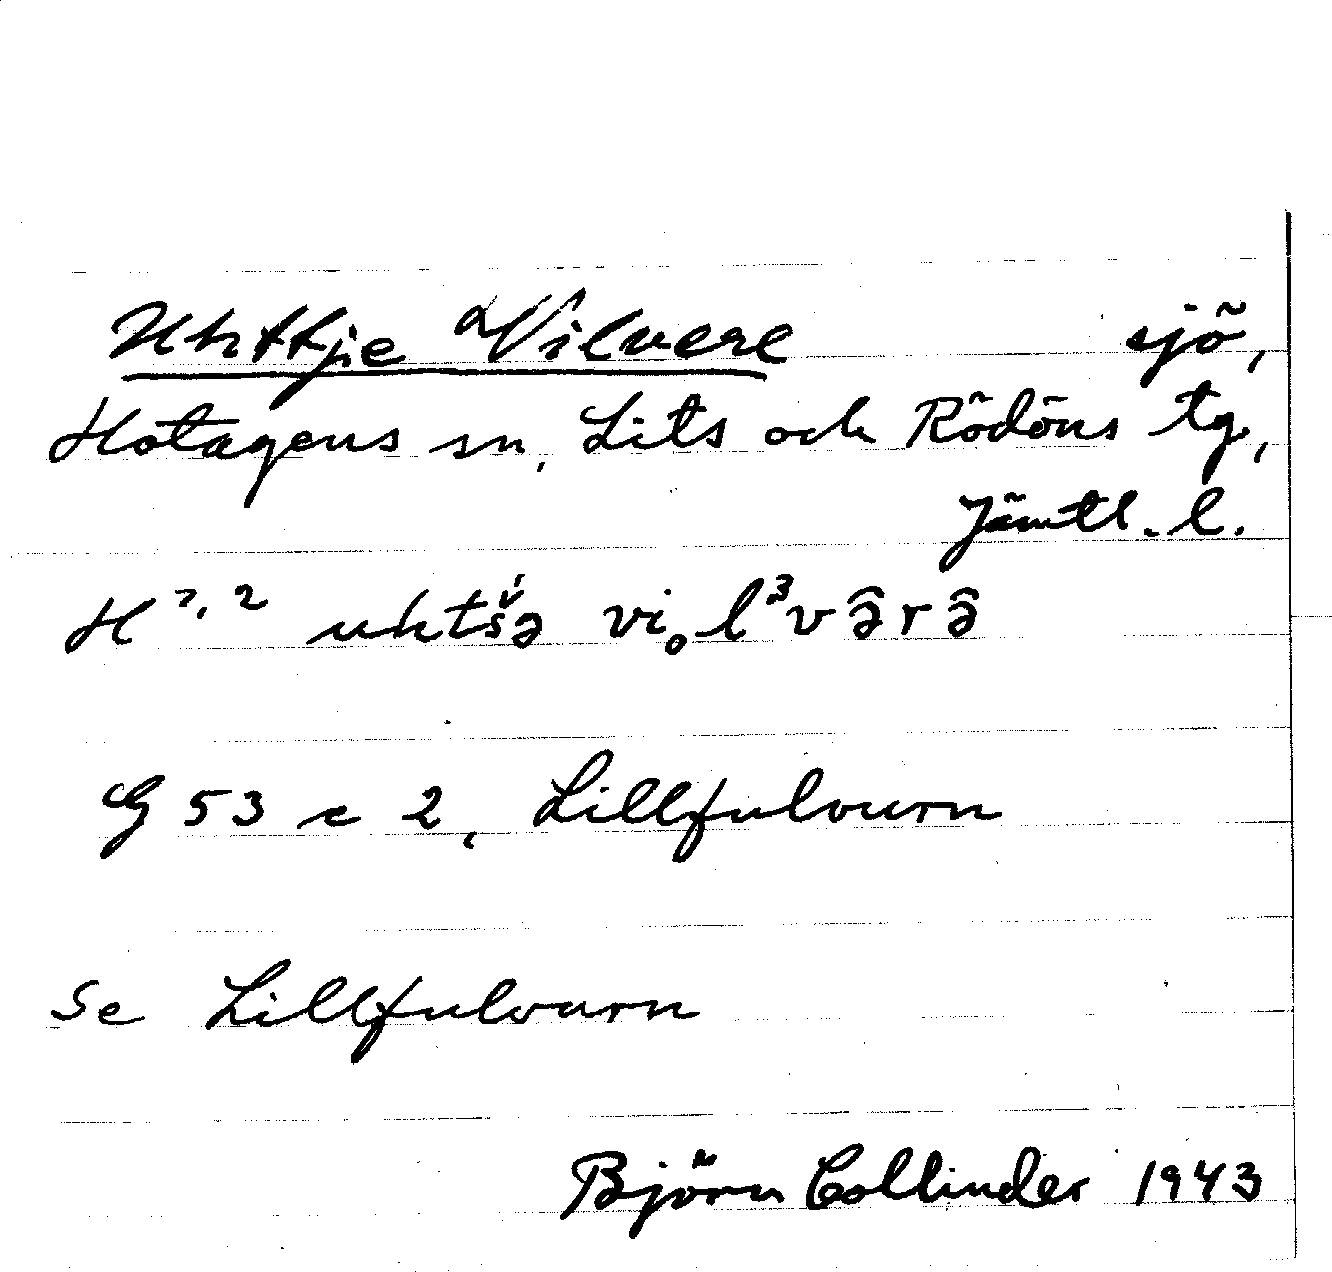 Uhttje Vilvere sjö,
Hotagens sn, Lits och Rödöns tg,
Jämtl. l.
H 7, 2 uktšə
G 53 c 2, Lillfulvurn
Se Lillfulvurn
Björn Collinder 1943